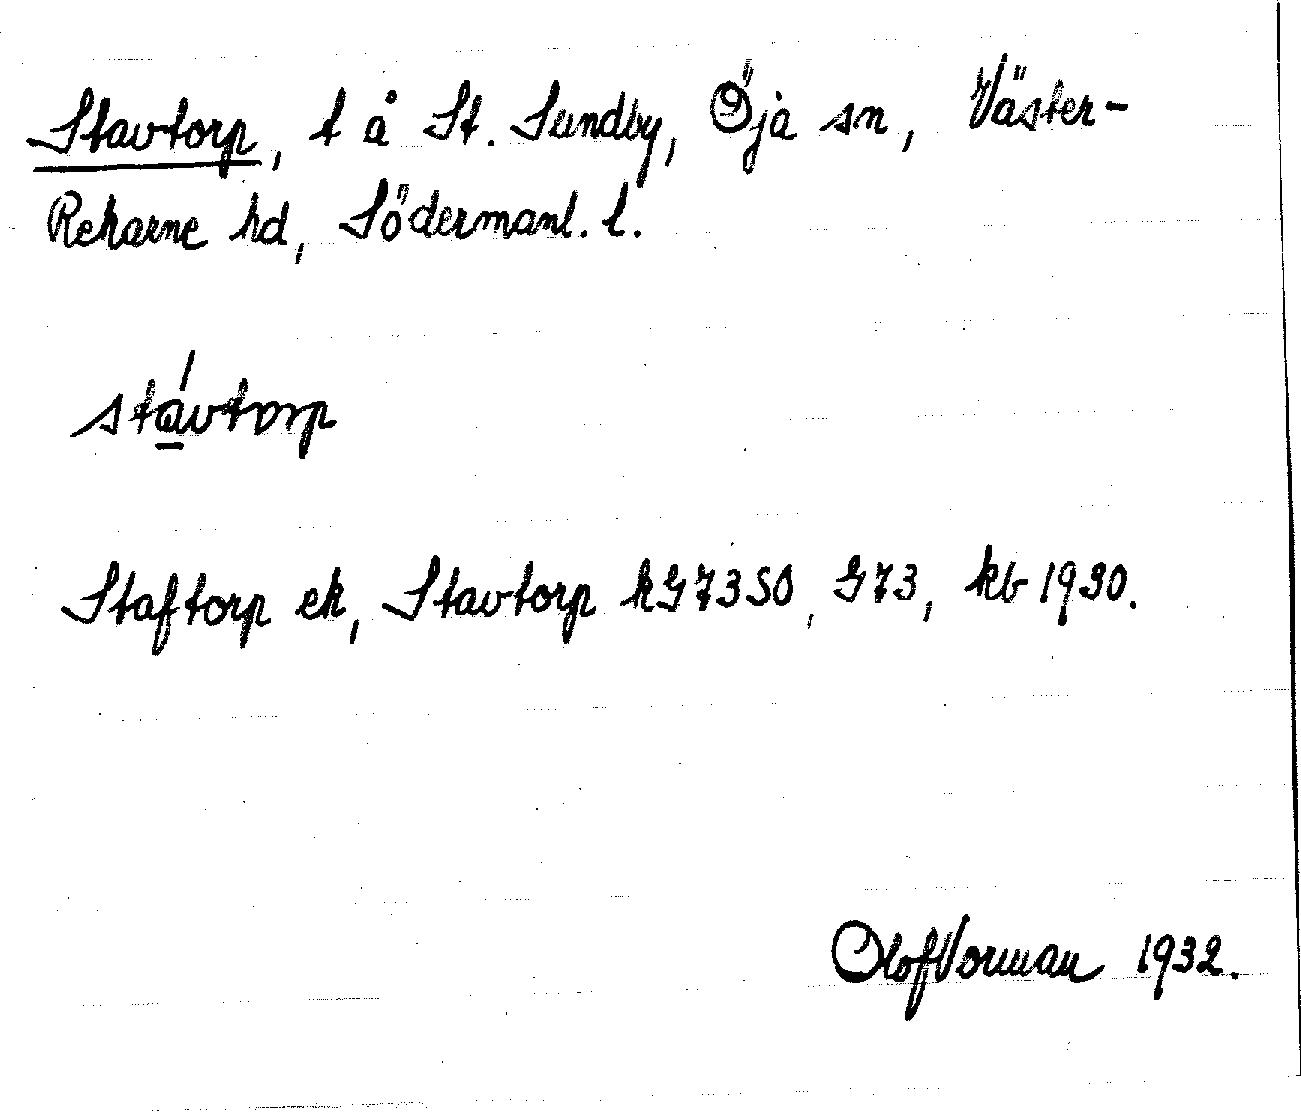 Stavtorp, t å St. Sundby, Öja sn, Väster-
Rekarne hd, Södermanl. l.
stávtorp
Staftorp ek, Stavtorp kG7350, G73, kb 1930.
Olof Vorman 1932.